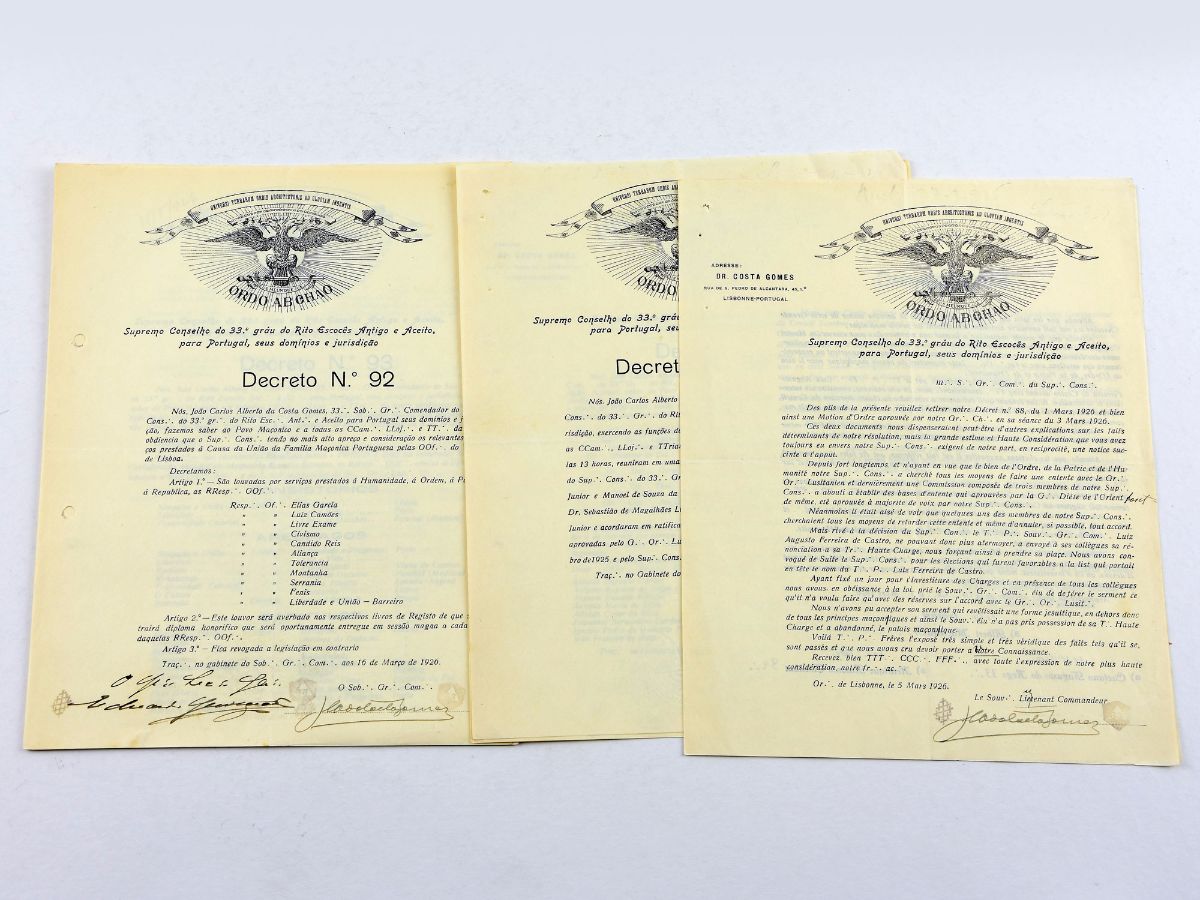 UNIVERSI TERRARUM ORBIS ARCHITECTONIS AD GLORIAM INGENTIS
ORDO AB CHAO
Supremo Conselho do 33.º gráu do Rito Escocês Antigo e Aceito,
para Portugal, seus domínios e jurisdição
Decreto N.º 92
Nós, João Carlos Alberto da Costa Gomes, 33.∴ Sob.∴ Gr.∴ Comendador do
Cons.∴ do 33.º gr.∴ do Rito Esc.∴ Ant.∴ e Aceito para Portugal seus dominios e j
ção, fazemos saber ao Povo Maçonico e a todas as CCam.∴ LLoj.∴ e TT.∴ da
obdiencia que o Sup.∴ Cons.∴ tendo no mais alto apreço e consideração os relevantes
ços prestados à Causa da União da Família Maçonica Portuguesa pelas OOf.∴ do
de Lisboa.
Decretamos:
Artigo 1.º — São louvadas por serviços prestados á Humanidade, á Ordem, á P
á Republica, as RResp.∴ OOf.∴
Resp.∴ Of.∴ Elias Garcia
" " Luiz Camões
" " Livre Exame
" " Civismo
" " Candido Reis
" " Aliança
" " Tolerancia
" " Montanha
" " Serrania
" " Fenis
" " Liberdade e União — Barreiro
Artigo 2.º — Este louvor será averbado nos respectivos livros de Registo de que
trairá diploma honorifico que será oportunamente entregue em sessão magna a cada
daquelas RResp.∴ OOf.∴
Artigo 3.º — Fica revogada a legislação em contrario
Traç.∴ no gabinete do Sob.∴ Gr.∴ Com.∴ aos 16 de Março de 1926.
O Sob.∴ Gr.∴ Com.∴
UNIVERSI TERRARUM ORBIS A
ORDO
Supremo Conselho do 33.º gráu
para Portugal, seu
Decret
Nós, João Carlos Alberto
Cons.∴ do 33.∴ gr.∴ do Rit
risdição, exercendo as funções d
as CCam.∴, LLoj.∴ e TTria
las 13 horas, reuniram em uma
do Sup.∴ Cons.∴ do 33.∴ Gr.∴
Junior e Manoel de Souza da
Dr. Sebastião de Magalhães L
Junior e acordaram em ratific
aprovadas pelo G.∴ Or.∴ Lu
bro de 1925 e pelo Sup.∴ Cons
Traç.∴ no Gabinete do
UNIVERSI TERRARUM ORBIS ARCHITECTONIS AD GLORIAM INGENTIS
ORDO AB CHAO
ADRESSE:
DR. COSTA GOMES
RUA DE S. PEDRO DE ALCANTARA, 45, 1.º
LISBONNE-PORTUGAL
Supremo Conselho do 33.º gráu do Rito Escocês Antigo e Aceito,
para Portugal, seus domínios e jurisdição
m.∴ S.∴ Gr.∴ Com.∴ du Sup.∴ Cons.∴
Des plis de la présente veuillez retirer notre Décret n.º 88, du 1 Mars 1926 et bien
ainsi une Motion d'Ordre aprouvée par notre Gr.∴ Ch.∴ en sa séance du 3 Mars 1926.
Ces deux documents nous dispenseraient peut-être d'autres explications sur les faits
déterminants de notre résolution, mais la grande estime et Haute Considération que vous avez
toujours eu envers notre Sup.∴ Cons.∴ exigent de notre part, en réciprocité, une notice suc-
cinte a l'apput.
Depuis fort longtemps, et n'ayant en vue que le bien de l'Ordre, de la Patrie et de l'Hu-
manité notre Sup.∴ Cons.∴ a cherché tous les moyens de faire une entente avec le Gr.∴
Or.∴ Lusitanien et dernièrement une Commission composée de trois membres de notre Sup.∴
Cons.∴ a abouti a établir des bases d'entente qui aprouvées par la G.∴ Diète de l'Orient
de même, eté aprouvée à majorité de voix par notre Sup.∴ Cons.∴
Néanmoins il était aisé de voir que quelques uns des membres de notre Sup.∴ Cons.∴
cherchaient tous les moyens de retarder cette entente et même d'annuler, si possible, tout accord.
Mais rivé à la décision du Sup.∴ Cons.∴ le T.∴ P.∴ Souv.∴ Gr.∴ Com.∴ Luiz
Augusto Ferreira de Castro, ne pouvant donc plus atermoyer, a envoyé à ses collègues sa ré-
nonciation a sa Tr.∴ Haute Charge, nous forçant ainsi a prendre sa place. Nous avons con-
voqué de Suite le Sup.∴ Cons.∴ pour les elections qui furent favorables a la list qui portait
en tête le nom du T.∴ P.∴ Luiz Ferreira de Castro.
Ayant fixé un jour pour l'investiture des Charges et en présence de tous les collègues
nous avons, en obéissance à la loi, prié le Souv.∴ Gr.∴ Com.∴ élu de déférer le serment ce
qu'il n'a voulu faire qu'avec des réserves sur l'accord avec le Gr.∴ Or.∴ Lusit.∴
Nous n'avons pu accepter son serment qui revêtissait une forme jesuitique, en dehors donc
de tous les principes maçoniques et ainsi le Souv.∴ élu n'a pas pris possession de sa T.∴ Haute
Charge et a abandonné, le palais maçonique.
Voilà T.∴ P.∴ Frères l'exposé très simple et très véridique des faits tels qu'il se,
sont passés et que nous avons cru devoir porter a Votre Connaissance.
Recevez bien TTT.∴ CCC.∴ FFF.∴, avec toute l'expression de notre plus haute
considération, notre fr.∴ ac.∴
Or.∴ de Lisbonne, le 5 Mars 1926.
Le Souv.∴ Lieutenant Commandeur